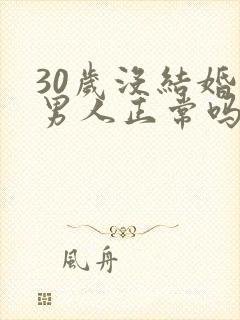 30歲沒結婚
男人正常吗
風舟